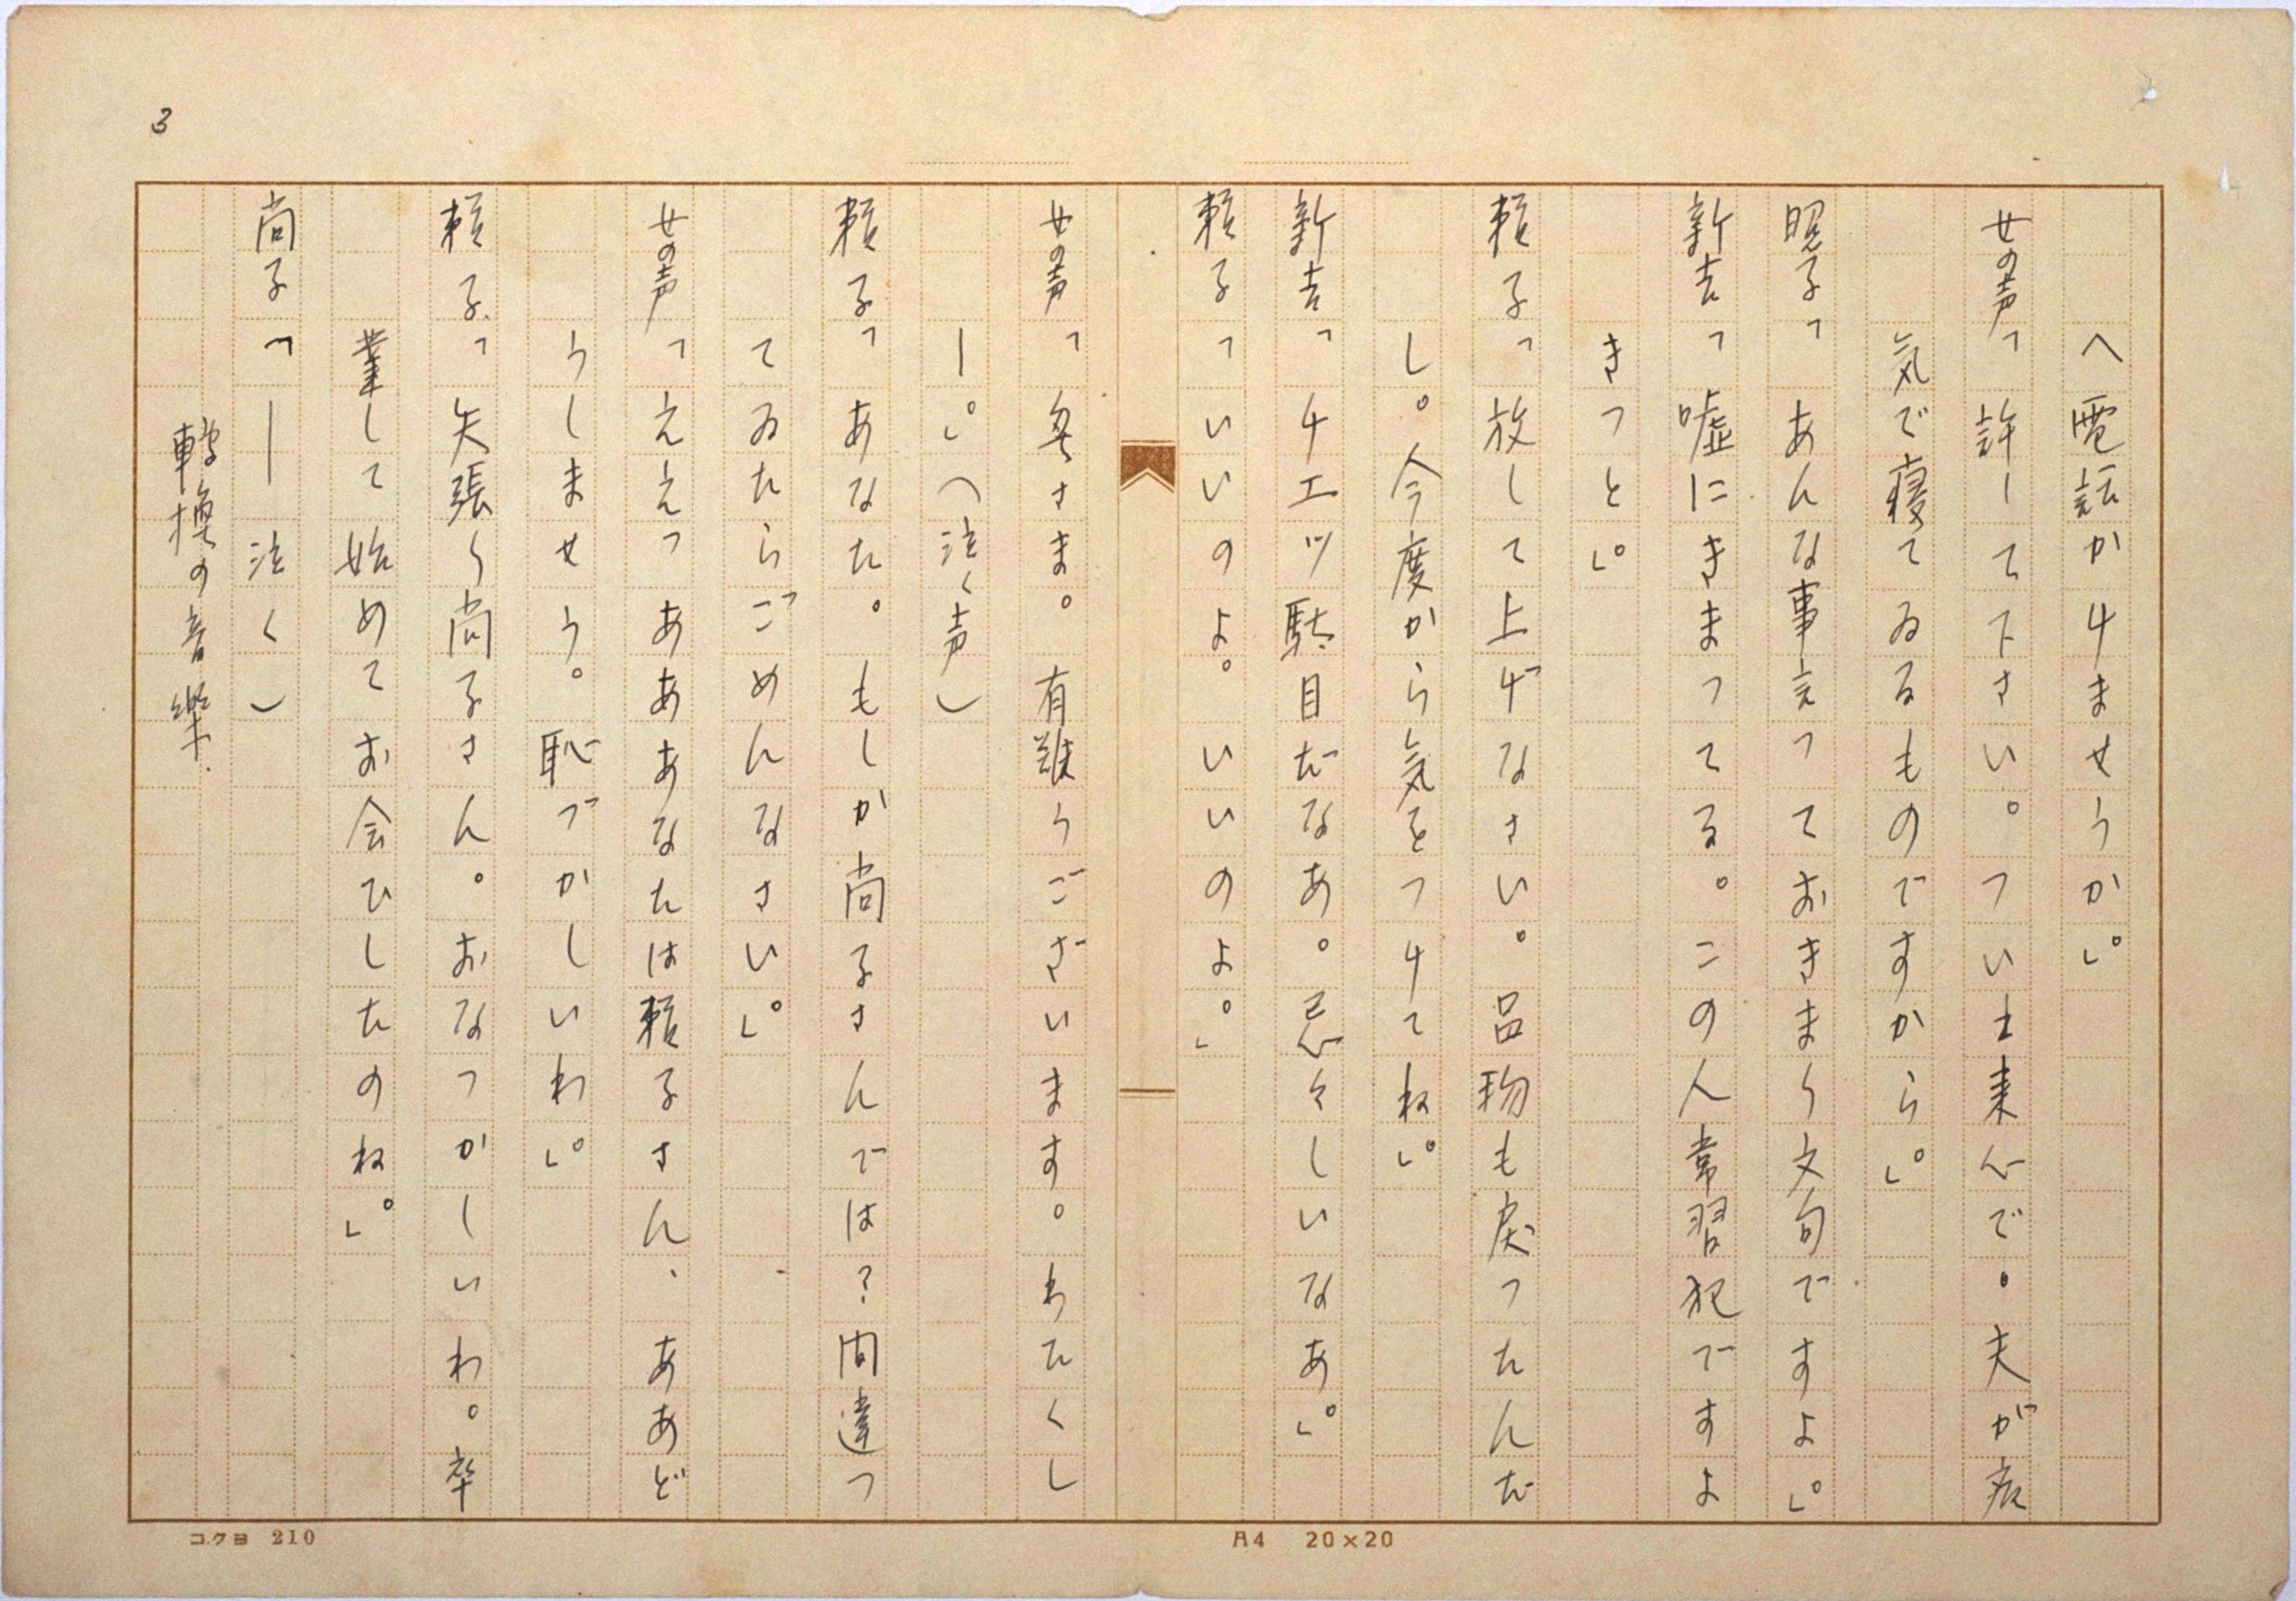 3
へ電話かけませうか。」
女の声「許して下さい。つい出来心で。夫が病
気で寝てゐるものですから。」
照子「あんな事言つておきまり文句ですよ。」
新吉「嘘にきまつてる。この人常習犯ですよ
きつと。」
頼子「放して上げなさい。品物も戻つたんだ
し。今度から気をつけてね。」
新吉「チエツ駄目だなあ。忌々しいなあ。」
頼子「いいのよ。いいのよ。」
女の声「奥さま。有難うございます。わたくし
―。」（泣く声）
頼子「あなた。もしか尚子さんでは?間違つ
てゐたらごめんなさい。」
女の声「ええつああああなたは頼子さん、ああど
うしませう。恥づかしいわ。」
頼子「矢張り尚子さん。おなつかしいわ。卒
業して始めてお会ひしたのね。」
尚子「――泣く）
転換の音楽.
コクヨ 210
A4 20×20